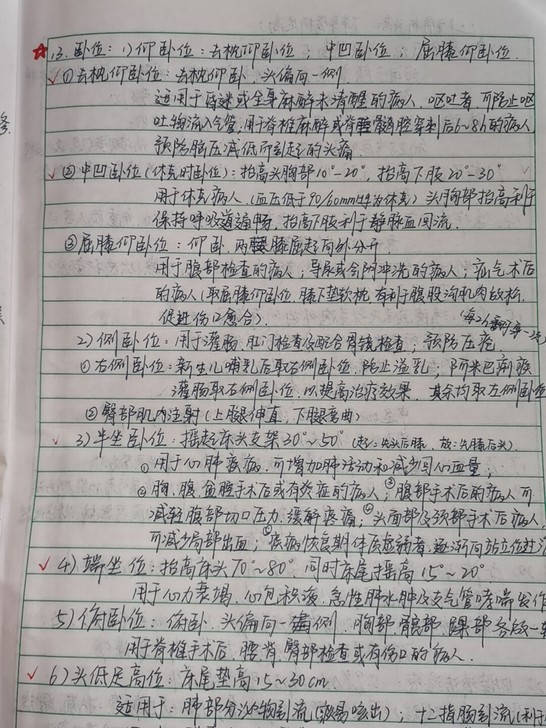 ☆13. 卧位：1）仰卧位：去枕仰卧位；中凹卧位；屈膝仰卧位.
√①去枕仰卧位：去枕仰卧.头偏向一侧.
适用于昏迷或全身麻醉未清醒的病人.呕吐者,可防止呕
吐物流入气管.用于脊椎麻醉或脊髓腔穿刺后6-8h的病人
预防脑压减低而引起的头痛.
√②中凹卧位(休克时卧位)：抬高头胸部10°-20°,抬高下肢20°-30°
用于休克病人.(血压低于90/60mmHg为休克)头胸部抬高利于
保持呼吸道通畅,抬高下肢利于静脉血回流.
③屈膝仰卧位：仰卧.两膝屈起向外分开.
用于腹部检查的病人；导尿或会阴冲洗的病人；疝气术后
的病人(取屈膝仰卧位.膝下垫软枕.有利于腹股沟肌肉放松,
促进伤口愈合).(每2h翻身一次)
2）侧卧位：用于灌肠,肛门检查,配合胃镜检查；预防压疮
①右侧卧位：新生儿哺乳后取右侧卧位,防止溢乳；阿米巴痢疾
灌肠取右侧卧位,以提高治疗效果.其余均取左侧卧位
②臀部肌内注射(上腿伸直,下腿弯曲)
√3）半坐卧位：摇起床头支架30°~50°(起：先头后膝,放：先膝后头).
①用于心肺疾病,可增加肺活动和减少回心血量；
②胸、腹、盆腔手术后或有炎症的病人；③腹部手术后的病人可
减轻腹部切口压力,缓解疼痛；④头面部及颈部手术后病人,
可减少局部出血；⑤疾病恢复期体质虚弱者,逐渐向站立位过
√4）端坐位：抬高床头70°~80°,同时床尾摇高15°~20°
用于心力衰竭,心包积液,急性肺水肿及支气管哮喘发作
5）俯卧位：俯卧.头偏向一侧.胸部.髋部.踝部各放一软
用于脊椎手术后,腰背,臀部检查或有伤口的病人.
√6）头低足高位：床尾垫高15~30cm
适用于：肺部分泌物引流(易咳出)；十二指肠引流(利于